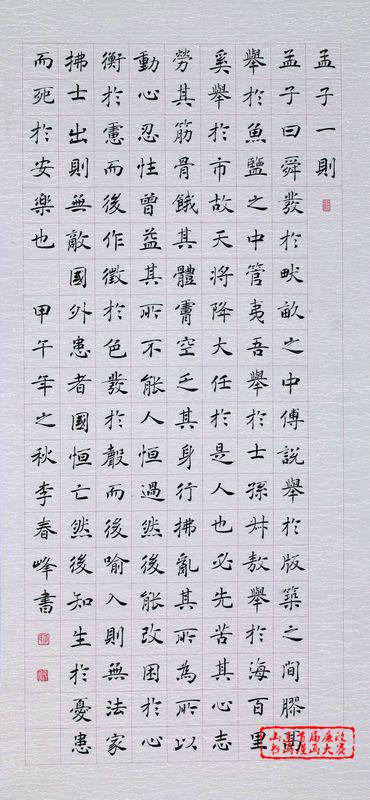 孟子一則
孟子曰舜發於畎畝之中傅說舉於版築之間膠鬲
舉於魚鹽之中管夷吾舉於士孫叔敖舉於海百里
奚舉於市故天將降大任於是人也必先苦其心志
勞其筋骨餓其體膚空乏其身行拂亂其所為所以
動心忍性曾益其所不能人恒過然後能改困於心
衡於慮而後作徵於色發於聲而後喻入則無法家
拂士出則無敵國外患者國恒亡然後知生於憂患
而死於安樂也 甲午年之秋李春峰書
首届廉政
书画漫画大赛